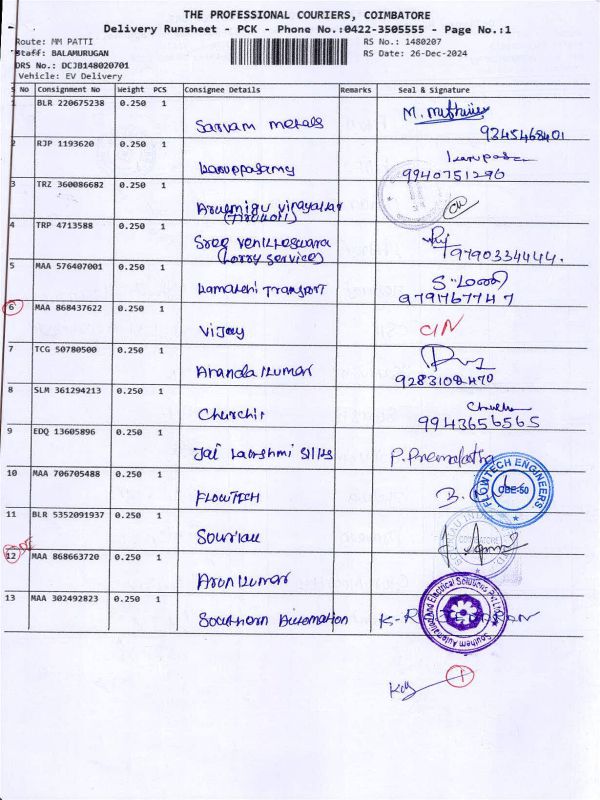 THE PROFESSIONAL COURIERS, COIMBATORE
Delivery Runsheet - PCK - Phone No.:0422-3505555 - Page No.:1
Route: MM PATTI RS No.: 1480207
Staff: BALAMURUGAN RS Date: 26-Dec-2024
DRS No.: DCJB148020701
Vehicle: EV Delivery
S No Consignment No Weight PCS Consignee Details Remarks Seal & Signature
1 BLR 220675238 0.250 1
Sarvam metals
9345468401
2 RJP 1193620 0.250 1
Karuppasamy
9940751296
3 TRZ 360086682 0.250 1
Arulmigu Vinayakar
4 TRP 4713588 0.250 1
Sree Venkateswara
(Lorry Service)
9790334444.
5 MAA 576407001 0.250 1
Kamatchi Transport
9791767747
6 MAA 868437622 0.250 1
Vijay C/N
7 TCG 50780500 0.250 1
Ananda Kumar
9283108470
8 SLM 361294213 0.250 1
Churchil
9943656565
9 EDQ 13605896 0.250 1
Jai Lakshmi Silks P. Premalatha
10 MAA 706705488 0.250 1
FLOWTECH
FLOWTECH ENGINEERS
CBE-50
11 BLR 5352091937 0.250 1
Souriau
COIMBATORE
12 MAA 868663720 0.250 1
Arun Kumar
13 MAA 302492823 0.250 1
Southern Automation
Southern Automation And Electrical Solutions Pvt Ltd
1